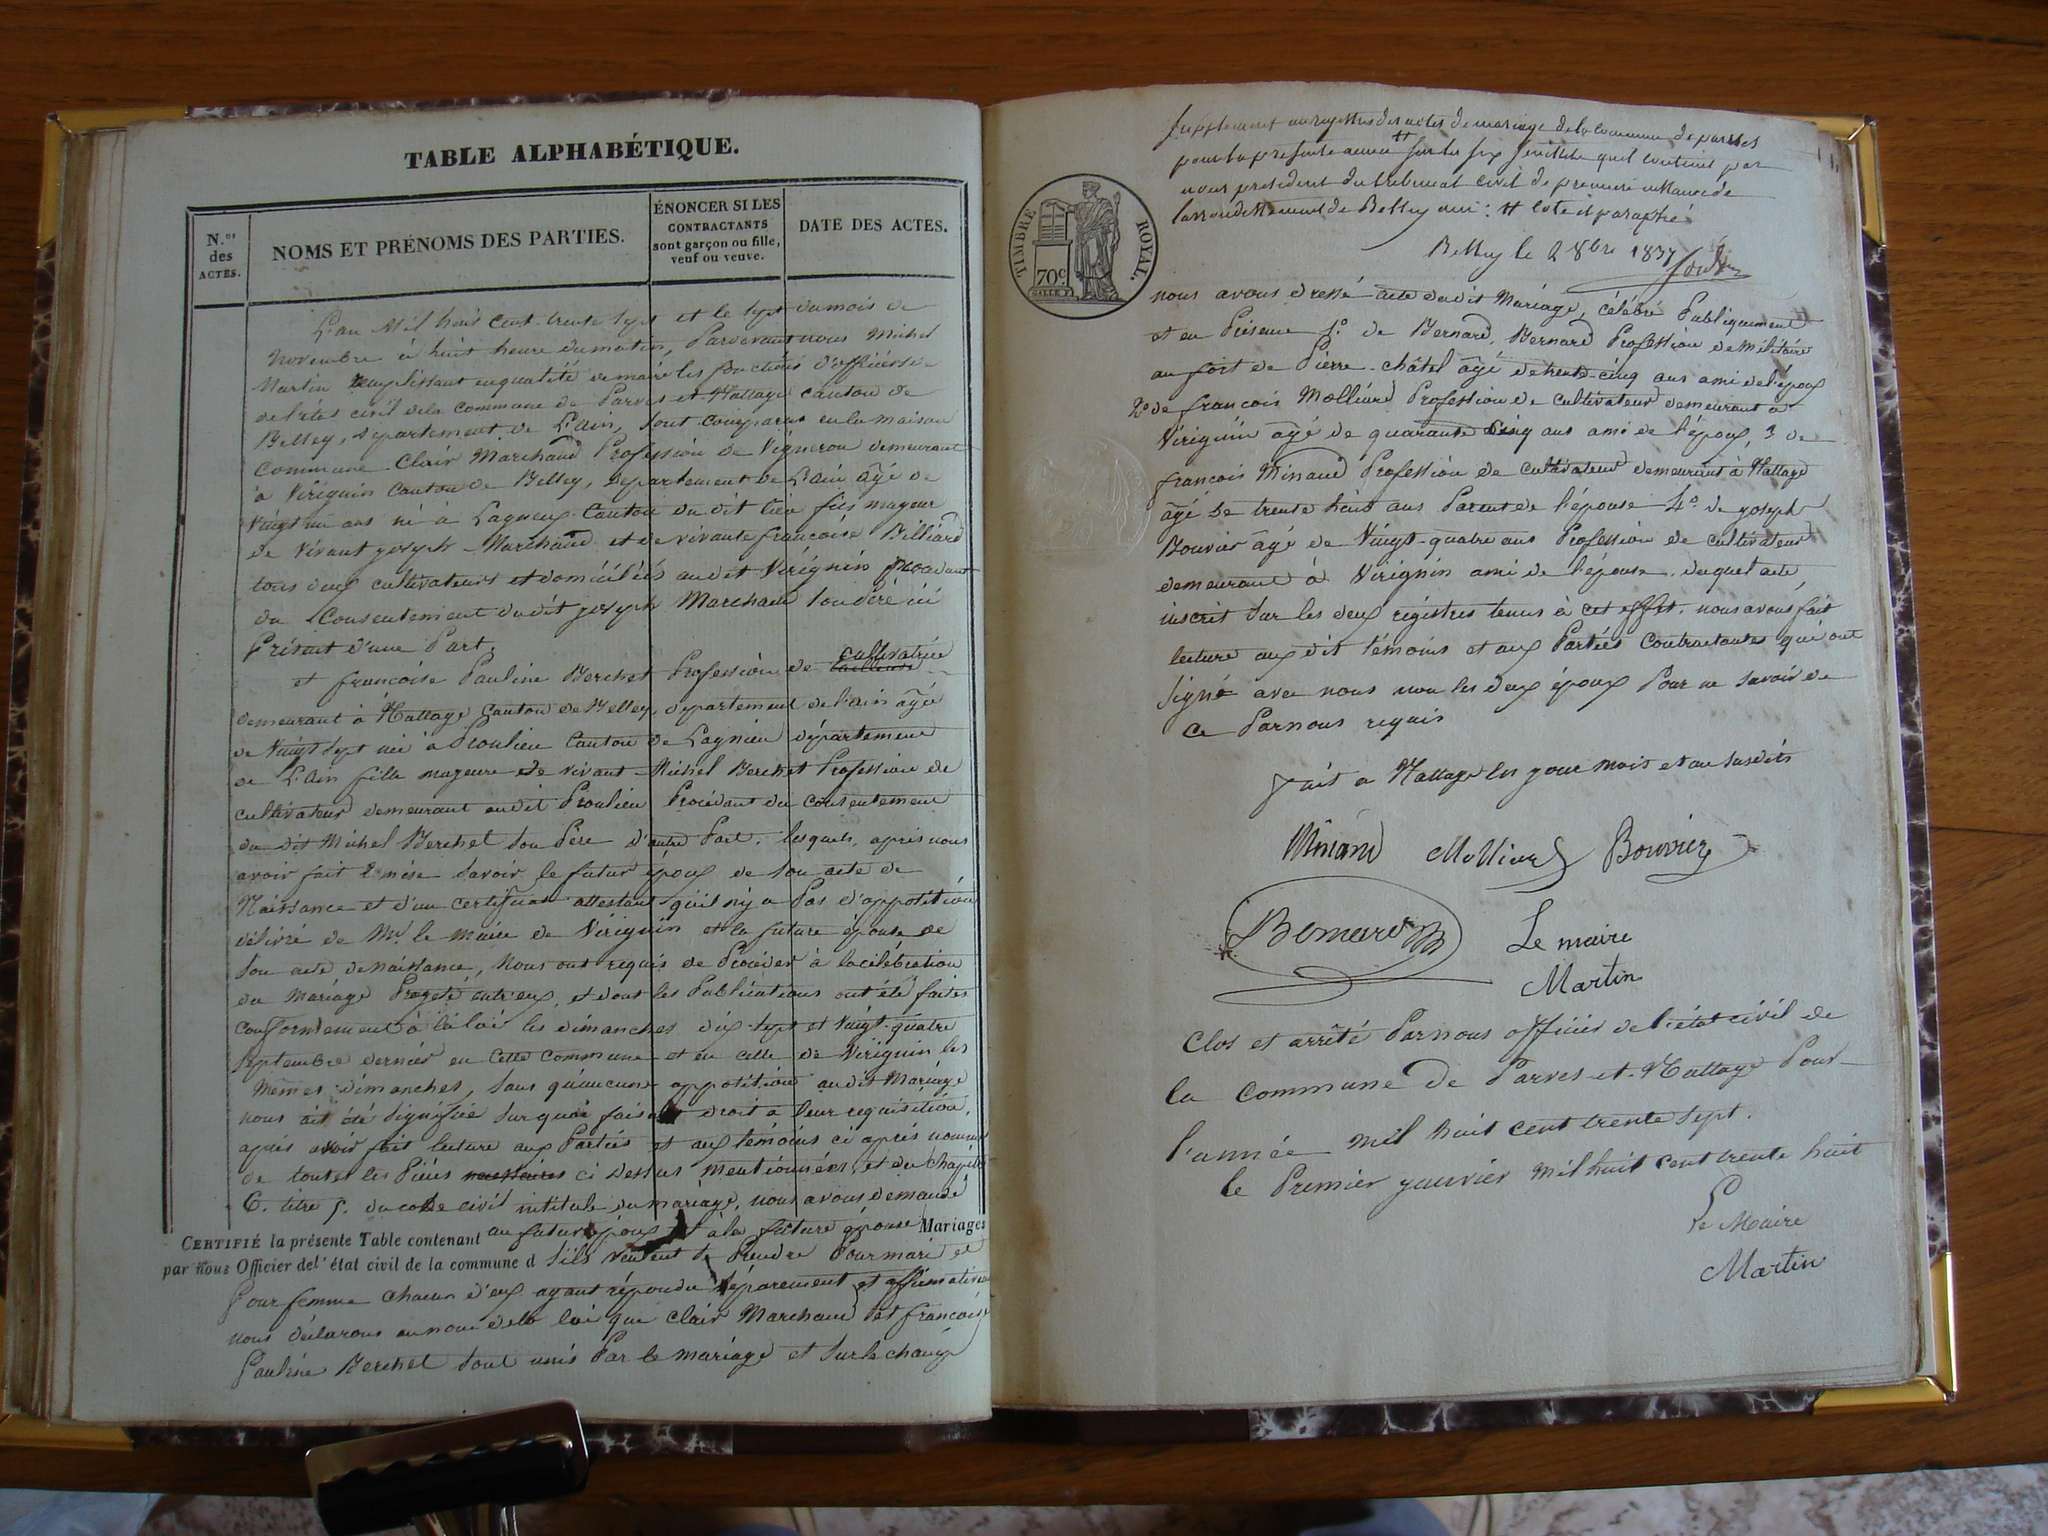 TABLE ALPHABÉTIQUE.
N.os des ACTES.
NOMS ET PRÉNOMS DES PARTIES.
ÉNONCER SI LES CONTRACTANTS sont garçon ou fille, veuf ou veuve.
DATE DES ACTES.
L'an Mil huit cent trente sept et le sept du mois de
Novembre à huit heure du matin, Pardevant nous Michel
Martin remplissant en qualité de maire les fonctions d'officier
de l'etat civil de la commune de Parves et Nattage canton de
Belley, departement de L'ain, sont comparus en la maison
commune Clair Marchand Profession de Vigneron demeurant
à Virignin Canton de Belley, departement de L'ain âgé de
Vingt un ans né à Lagneux Canton du dit lieu fils mageur
de vivant joseph Marchand et de vivante francoise Billiard
tous deux cultivateurs et domiciliés audit Virignin procédant
du Consentement dudit joseph Marchand son père ici
Présent d'une Part,
cultivatrice
et francoise Pauline Berchet Profession de tailleuse
demeurant à Nattage Canton de Belley, departement de l'ain âgée
de Vingt sept née à Proulieu Canton de Lagnieu département
de L'ain fille mageure de vivant Michel Berchet Profession de
cultivateur demeurant audit Proulieu Procédant du consentement
du dit Michel Berchet son Père d'autre Part. lesquels, après nous
avoir fait remise savoir le futur époux de son acte de
Naissance et d'un certificat attestant qu'il n'y a Pas d'opposition
délivré de Mr le maire de Virignin et la future épouse de
son acte de naissance, Nous ont requis de Procéder à la célébration
du Mariage Projeté entr'eux, et dont les Publications ont été faites
conformement à la loi les dimanches dix-sept et vingt-quatre
septembre dernier en cette commune et en celle de Virignin les
mêmes dimanches, sans qu'aucune opposition audit Mariage
nous ait été signifié sur quoi faisant droit à leur requisition,
après avoir fait lecture aux Parties et aux témoins ci après nommés
de toutes les Pièces necessaires ci dessus mentionnées, et du chapitre
6. titre 5. du code civil intitulé du mariage, nous avons demandé
CERTIFIÉ la présente Table contenant au futur époux et à la future épouse Mariages
par nous Officier de l'état civil de la commune d s'ils veulent se Prendre Pour mari et
Pour femme chacun d'eux ayant répondu séparement et affirmativement
nous déclarons au nom de la loi que Clair Marchand et francoise
Pauline Berchet sont unis Par le mariage et sur le champ
Supplement au registre des actes de mariage de la Commune de parves
pour la presente année # sur les six feuillets quil contient par
nous president du tribunal civil de premiere instance de
larrondissement de Belley ain: # coté et paraphé
Belley le 2 8bre 1837
TIMBRE ROYAL.
70c
nous avons dressé acte dudit Mariage, célébré Publiquement
et en Présence 1° de Bernard, Bernard Profession de Militaire
au fort de Pierre-châtel âgé de trente-cinq ans ami de l'époux
2° de francois Mollieurd Profession de cultivateur demeurant à
Virignin âgé de quarante cinq ans ami de l'époux, 3 de
francois Minand Profession de cultivateur demeurant à Nattage
âgé de trente huit ans Parent de l'épouse 4° de joseph
Bouvier âgé de Vingt-quatre ans Profession de cultivateur
demeurant à Virignin ami de l'épouse. duquel acte,
inscrit sur les deux régistres tenus à cet effet. nous avons fait
lecture aux dit témoins et aux Parties contractantes qui ont
signé avec nous non les deux époux Pour ne savoir de
ce Par nous requis
Fait a Nattage les jour mois et an susdits
Minand Mollieurd Bouvier
Bernard
Le maire
Martin
Clos et arrêté Par nous officier de l'état civil de
la commune de Parves et Nattage Pour
l'année mil huit cent trente sept.
le Premier janvier mil huit cent trente huit
Le Maire
Martin